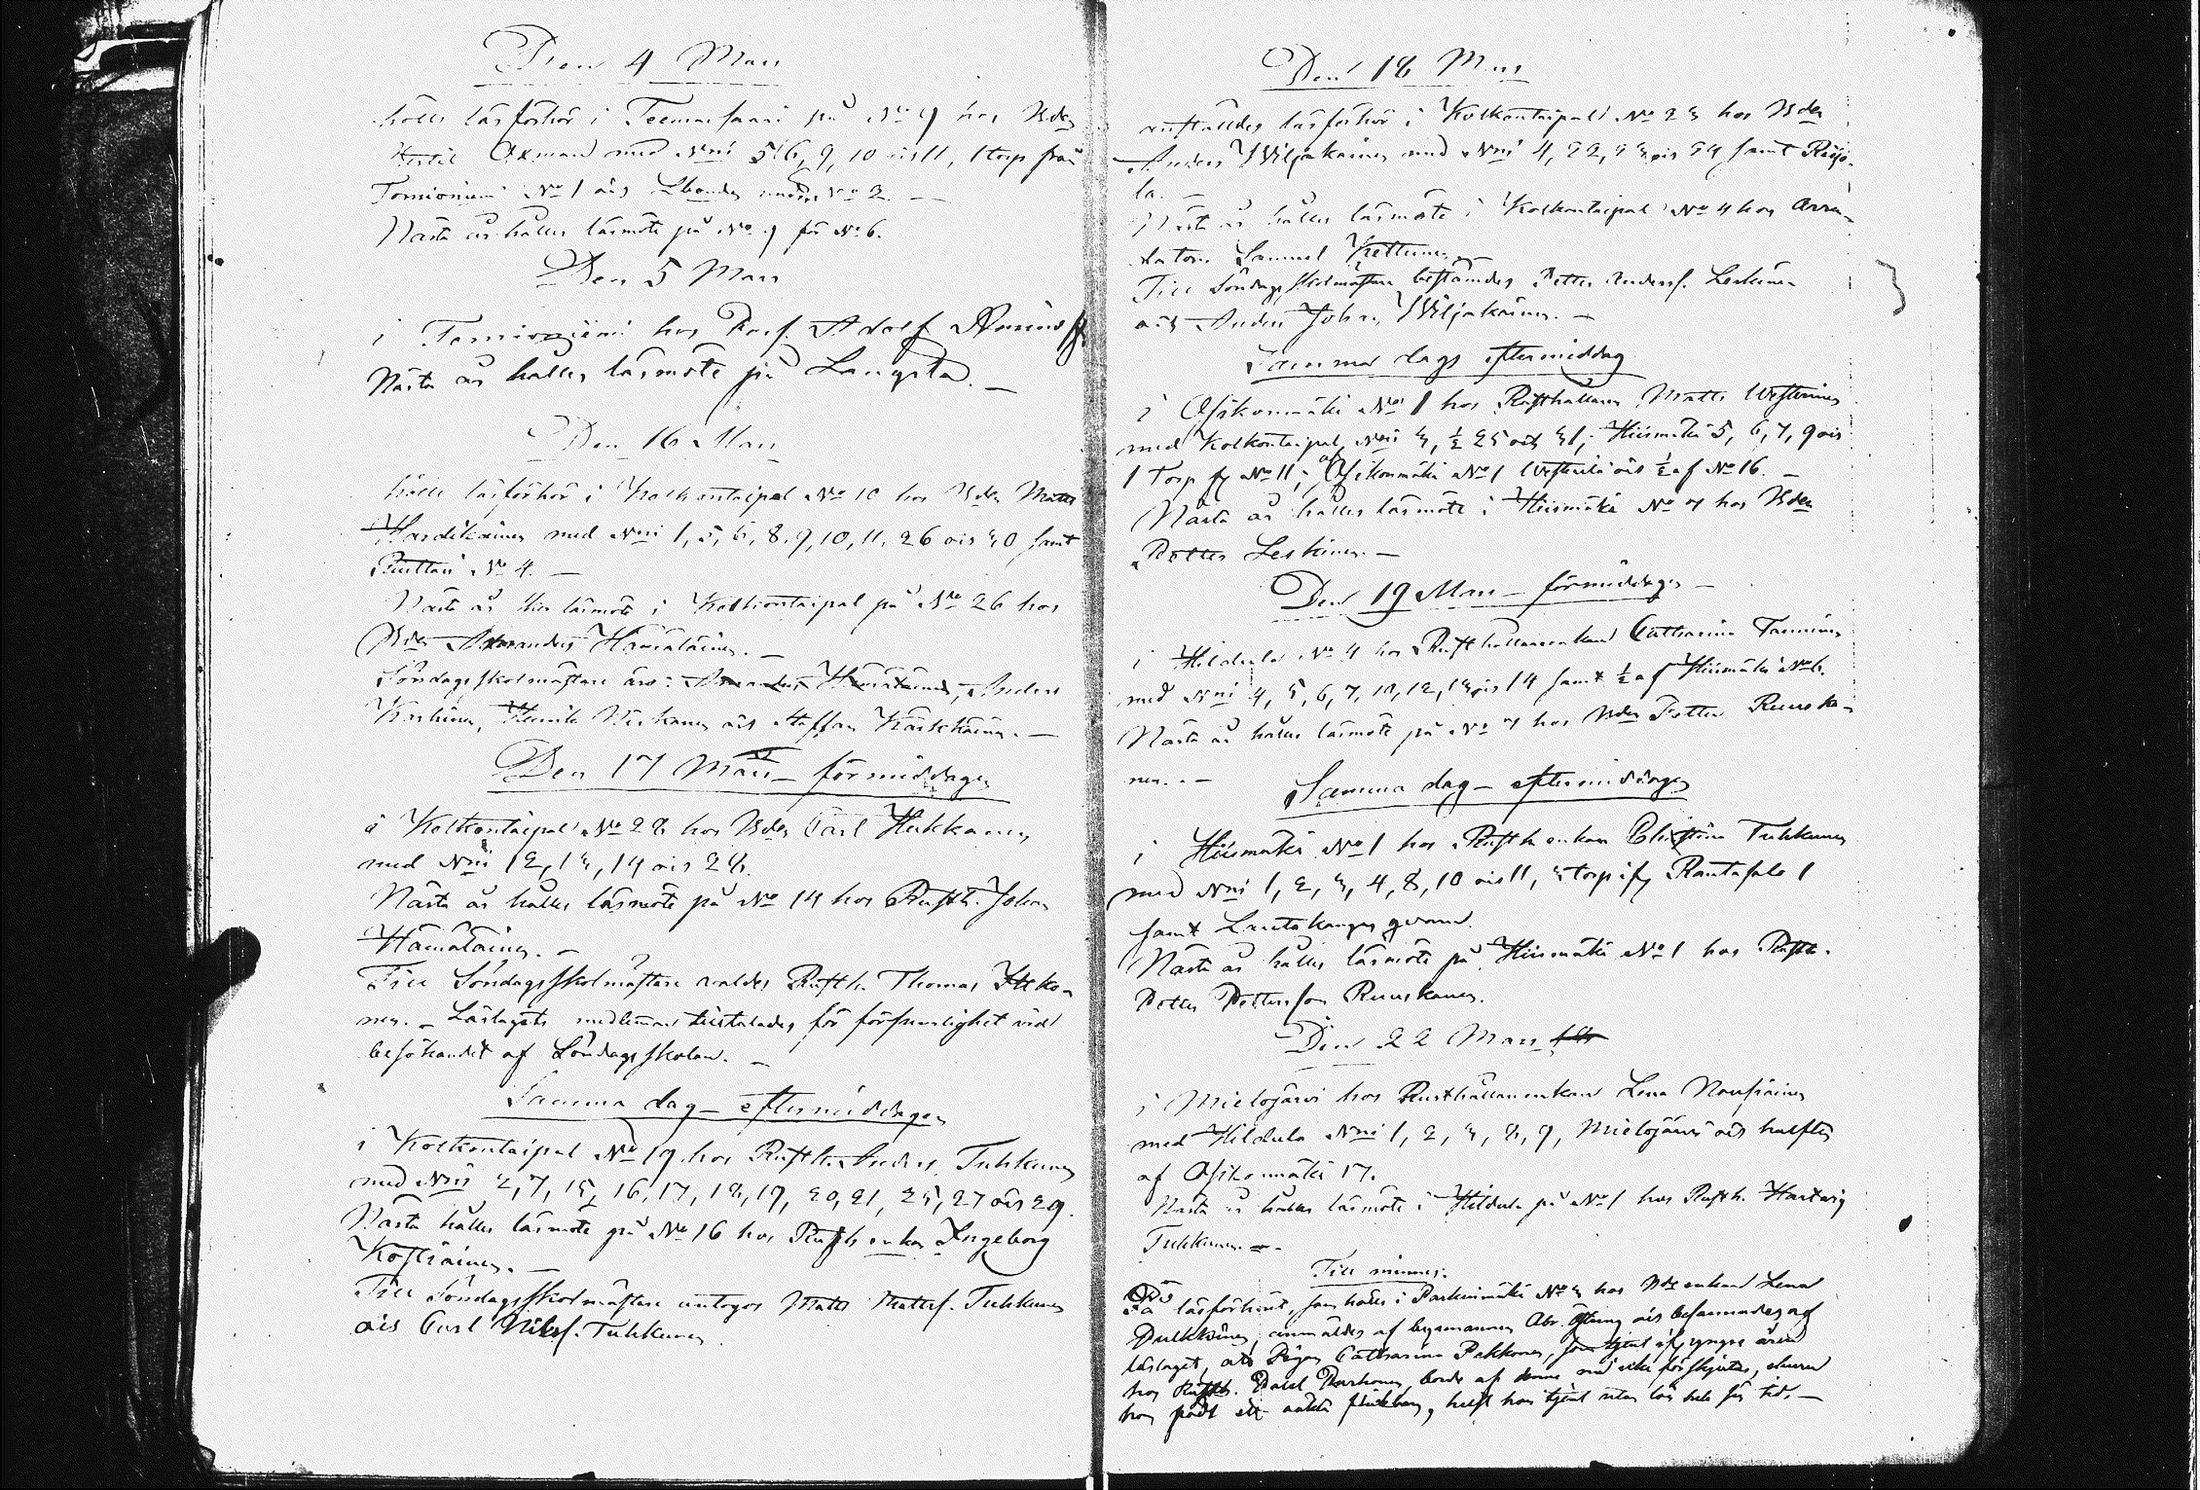 Den 4 Mars
hölls läsförhör i Teemassaari på No 9 hos Bden
Axman med Nri 5, 6, 9, 10 och 11, 1 torp från
Tornioniemi No 1 och under No 2. —
Nästa år hålles läsmöte på No 9 för No 6.
Den 5 Mars
i Tornioniemi hos Prof. Adolf
Nästa år hålles läsmöte på Langsta. —
Den 16 Mars
hölls läsförhör i Kolkontaipal No 10 hos Bden Matts
Hardikainen med Nri 1, 5, 6, 8, 9, 10, 11, 26 och 30 samt
No 4. —
Nästa år blir läsmöte i Kolkontaipal på No 26 hos
Bden Amandus Hämäläinen. —
Söndagsskolmästare äro: Amandus Hämäläinen, Anders
Henrik och Staffan Kärkkäinen. —
Den 17 Mars — förmiddagen
i Kolkontaipal No 28 hos Bden Carl Hukkanen
med Nri 12, 13, 14 och 28.
Nästa år hålles läsmöte på No 14 hos Rusth. Johan
Hämäläinen. —
Till Söndagsskolmästare valdes Rusth. Thomas Itko-
nen. — Läslagets medlemmar tilltalades för försumlighet vid
besökandet af Söndagsskolan. —
Samma dag — eftermiddagen
i Kolkontaipal No 19 hos Rusth. Anders Tuhkunen
med Nri 2, 7, 15, 16, 17, 18, 19, 20, 21, 25, 27 och 29.
Nästa hålles läsmöte på No 16 hos Rusth enkan Ingeborg
Kostiainen. —
Till Söndagsskolmästare antogos Matts Mattsf. Tuhkunen
och Carl Nilsf. Tuhkunen
Den 18 Mars
anställdes läsförhör i Kolkontaipal No 23 hos Bden
Anders Wiljakainen med Nri 4, 22, 23 och 24 samt Reijo-
la. —
Nästa år hålles läsmöte i Kolkontaipal No 4 hos Arren-
datorn Samuel Kettunen. —
Till Söndagsskolmästare bestämdes Petter Andersf. Leskinen
och Anders Johan Wiljakainen. —
Samma dags eftermiddag
i Osikonmäki No 1 hos Rusthållaren Matts Westerinen
med Kolkontaipal Nri 3, ½ 25 och 31; Hiismäki 5, 6, 7, 9 och
1 Torp fr No 11; af Osikonmäki No 1 och ½ af No 16. —
Nästa år hålles läsmöte i Hiismäki No 7 hos Bden
Petter Leskinen. —
Den 19 Mars — förmiddagen —
i Hildula No 4 hos Rusthållareenkan Catharina
med Nri 4, 5, 6, 7, 10, 12, 13 och 14 samt ½ af Hiismäki No 6.
Nästa år hålles läsmöte på No 7 hos Bden Petter Ruuska-
nen. —
Samma dag — eftermiddagen
i Hiismäki No 1 hos Rusth enkan Christina Tuhkunen
med Nri 1, 2, 3, 4, 8, 10 och 11, 3 torp ifr Rantasalo 1
samt Lautakangas grund.
Nästa år hålles läsmöte på Hiismäki No 1 hos Rusth.
Petter Pettersson Ruuskanen.
Den 22 Mars
i Mielojärvi hos Rusthållareenkan Lena Nousiainen
med Hildula Nri 1, 2, 3, 8, 9, Mielojärvi och halften
af Osikonmäki 17.
Nästa år hålles läsmöte i Hildula på No 1 hos Rusth. Hartwig
Tuhkunen. —
Till minne:
På läsförhöret, som hölls i Parkinmäki No 3 hos Bde enkan Lena
Pulkkinen, anmäldes af byamannen Abr. och besannades af
läslaget, att Pigan Catharina Pekkonen, som tjent ifr yngre åren
hos Rusth. borde af denne
hon tjent utan lön hela sin tid. —